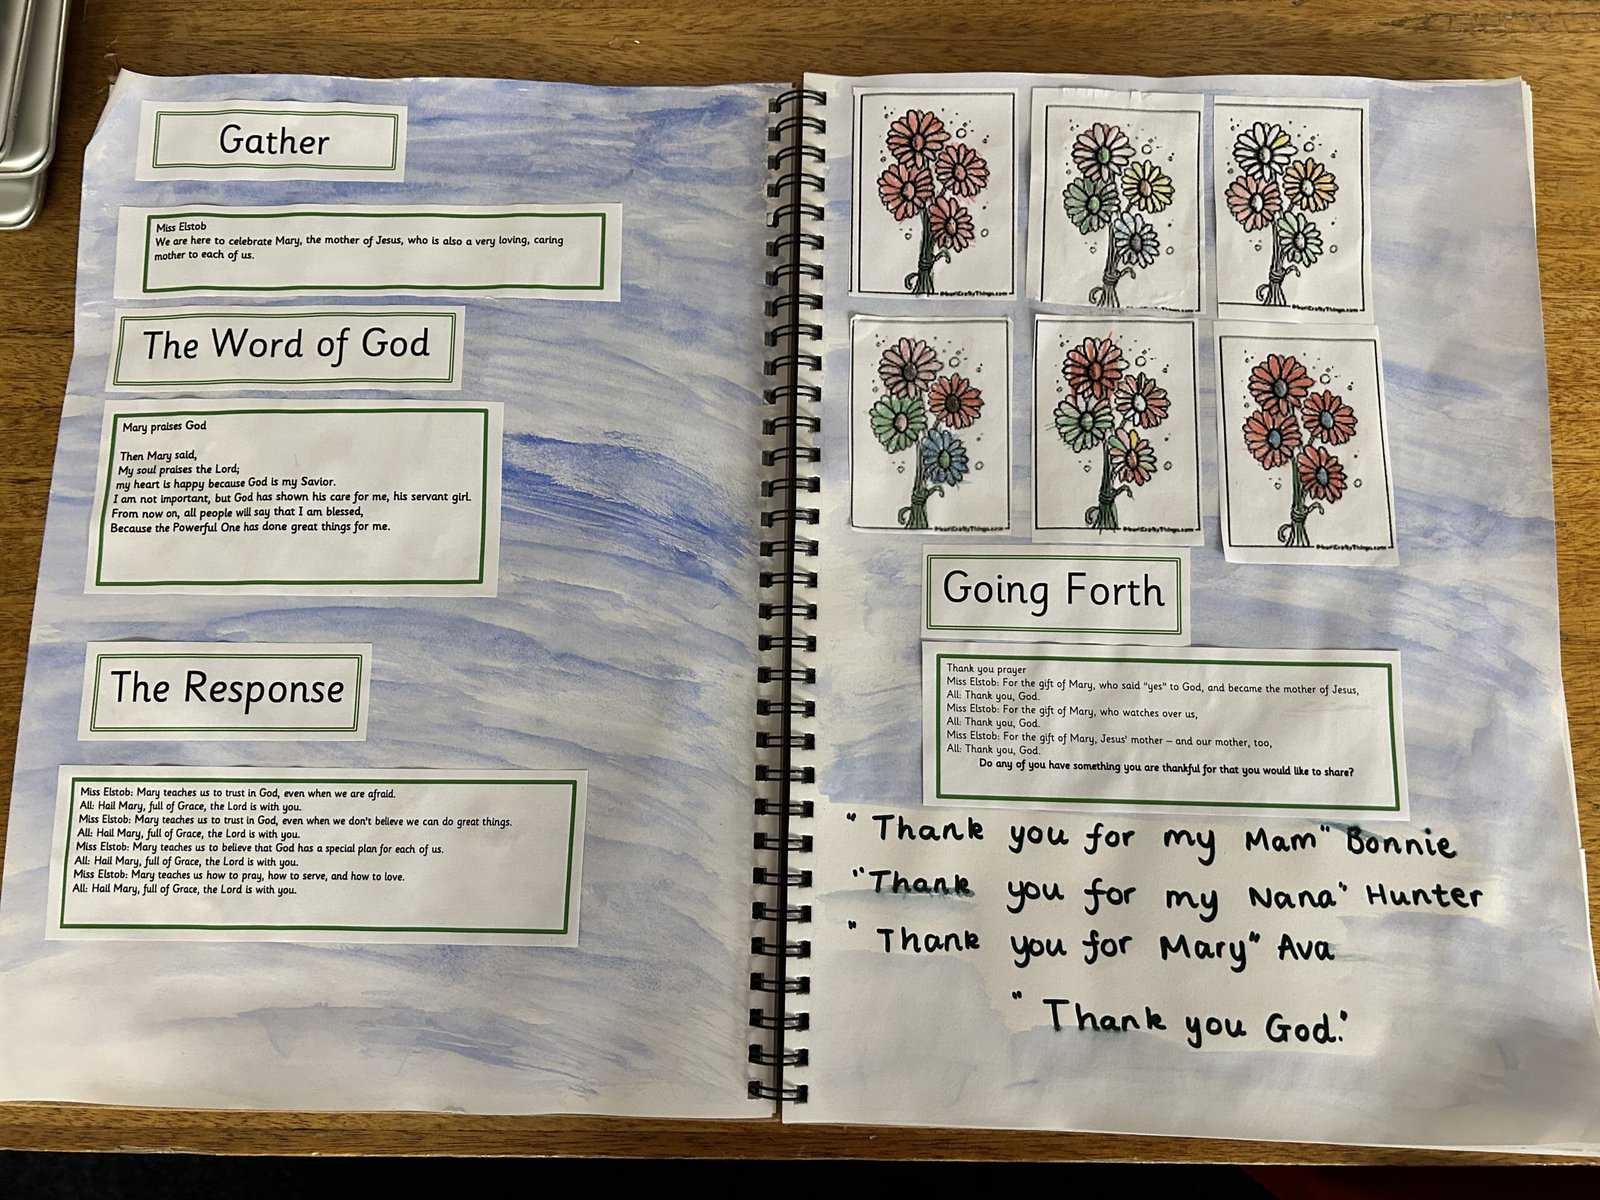 Gather
Miss Elstob
We are here to celebrate Mary, the mother of Jesus, who is also a very loving, caring
mother to each of us.
The Word of God
Mary praises God
Then Mary said,
My soul praises the Lord;
my heart is happy because God is my Savior.
I am not important, but God has shown his care for me, his servant girl.
From now on, all people will say that I am blessed,
Because the Powerful One has done great things for me.
The Response
Miss Elstob: Mary teaches us to trust in God, even when we are afraid.
All: Hail Mary, full of Grace, the Lord is with you.
Miss Elstob: Mary teaches us to trust in God, even when we don't believe we can do great things.
All: Hail Mary, full of Grace, the Lord is with you.
Miss Elstob: Mary teaches us to believe that God has a special plan for each of us.
All: Hail Mary, full of Grace, the Lord is with you.
Miss Elstob: Mary teaches us how to pray, how to serve, and how to love.
All: Hail Mary, full of Grace, the Lord is with you.
Going Forth
Thank you prayer
Miss Elstob: For the gift of Mary, who said "yes" to God, and became the mother of Jesus,
All: Thank you, God.
Miss Elstob: For the gift of Mary, who watches over us,
All: Thank you, God.
Miss Elstob: For the gift of Mary, Jesus' mother – and our mother, too,
All: Thank you, God.
Do any of you have something you are thankful for that you would like to share?
"Thank you for my Mam" Bonnie
"Thank you for my Nana" Hunter
"Thank you for Mary" Ava
"Thank you God."